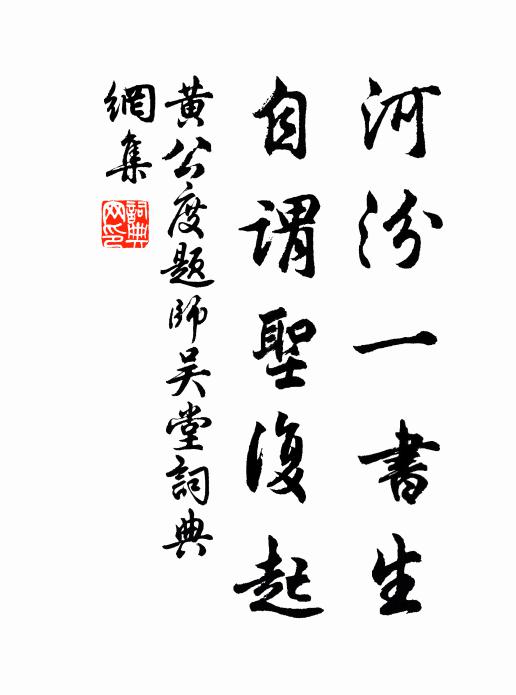 河汾一書生
自謂聖復起
黃公度題師吴堂詞典
網集
詞典
网印